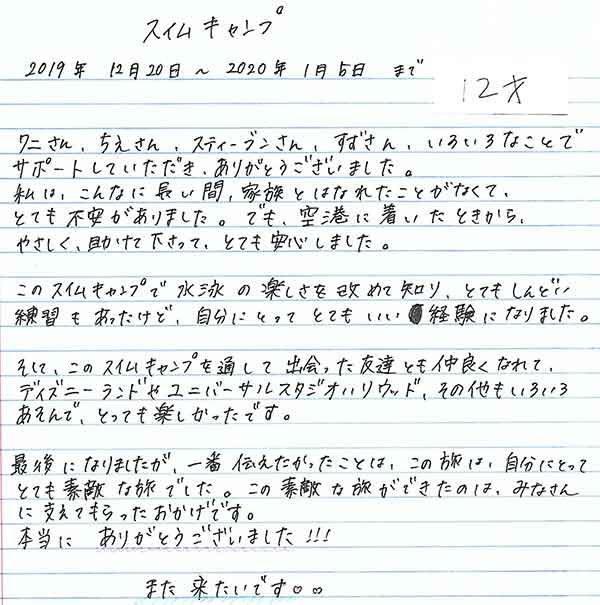 スイムキャンプ
2019年 12月20日 〜 2020年 1月5日 まで
12才
ワニさん、ちえさん、スティーブンさん、すずさん、いろいろなことで
サポートしていただき、ありがとうございました。
私は、こんなに長い間、家族とはなれたことがなくて、
とても不安がありました。でも、空港に着いたときから、
やさしく、助けて下さって、とても安心しました。
このスイムキャンプで水泳の楽しさを改めて知り、とてもしんどい
練習もあったけど、自分にとってとてもいい経験になりました。
そして、このスイムキャンプを通して出会った友達とも仲良くなれて、
ディズニーランドやユニバーサルスタジオハリウッド、その他もいろいろ
あそんで、とっても楽しかったです。
最後になりましたが、一番伝えたかったことは、この旅は、自分にとって
とても素敵な旅でした。この素敵な旅ができたのは、みなさん
に支えてもらったおかげです。
本当に ありがとうございました!!!
また来たいです♡♡